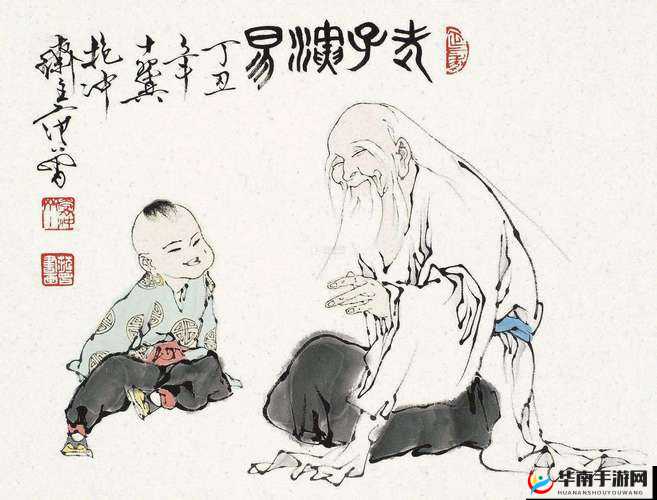 老子演易
丁丑
年
十翼
抱冲
齋主范曾
华南手游网
HUANANSHOUYOUWANG